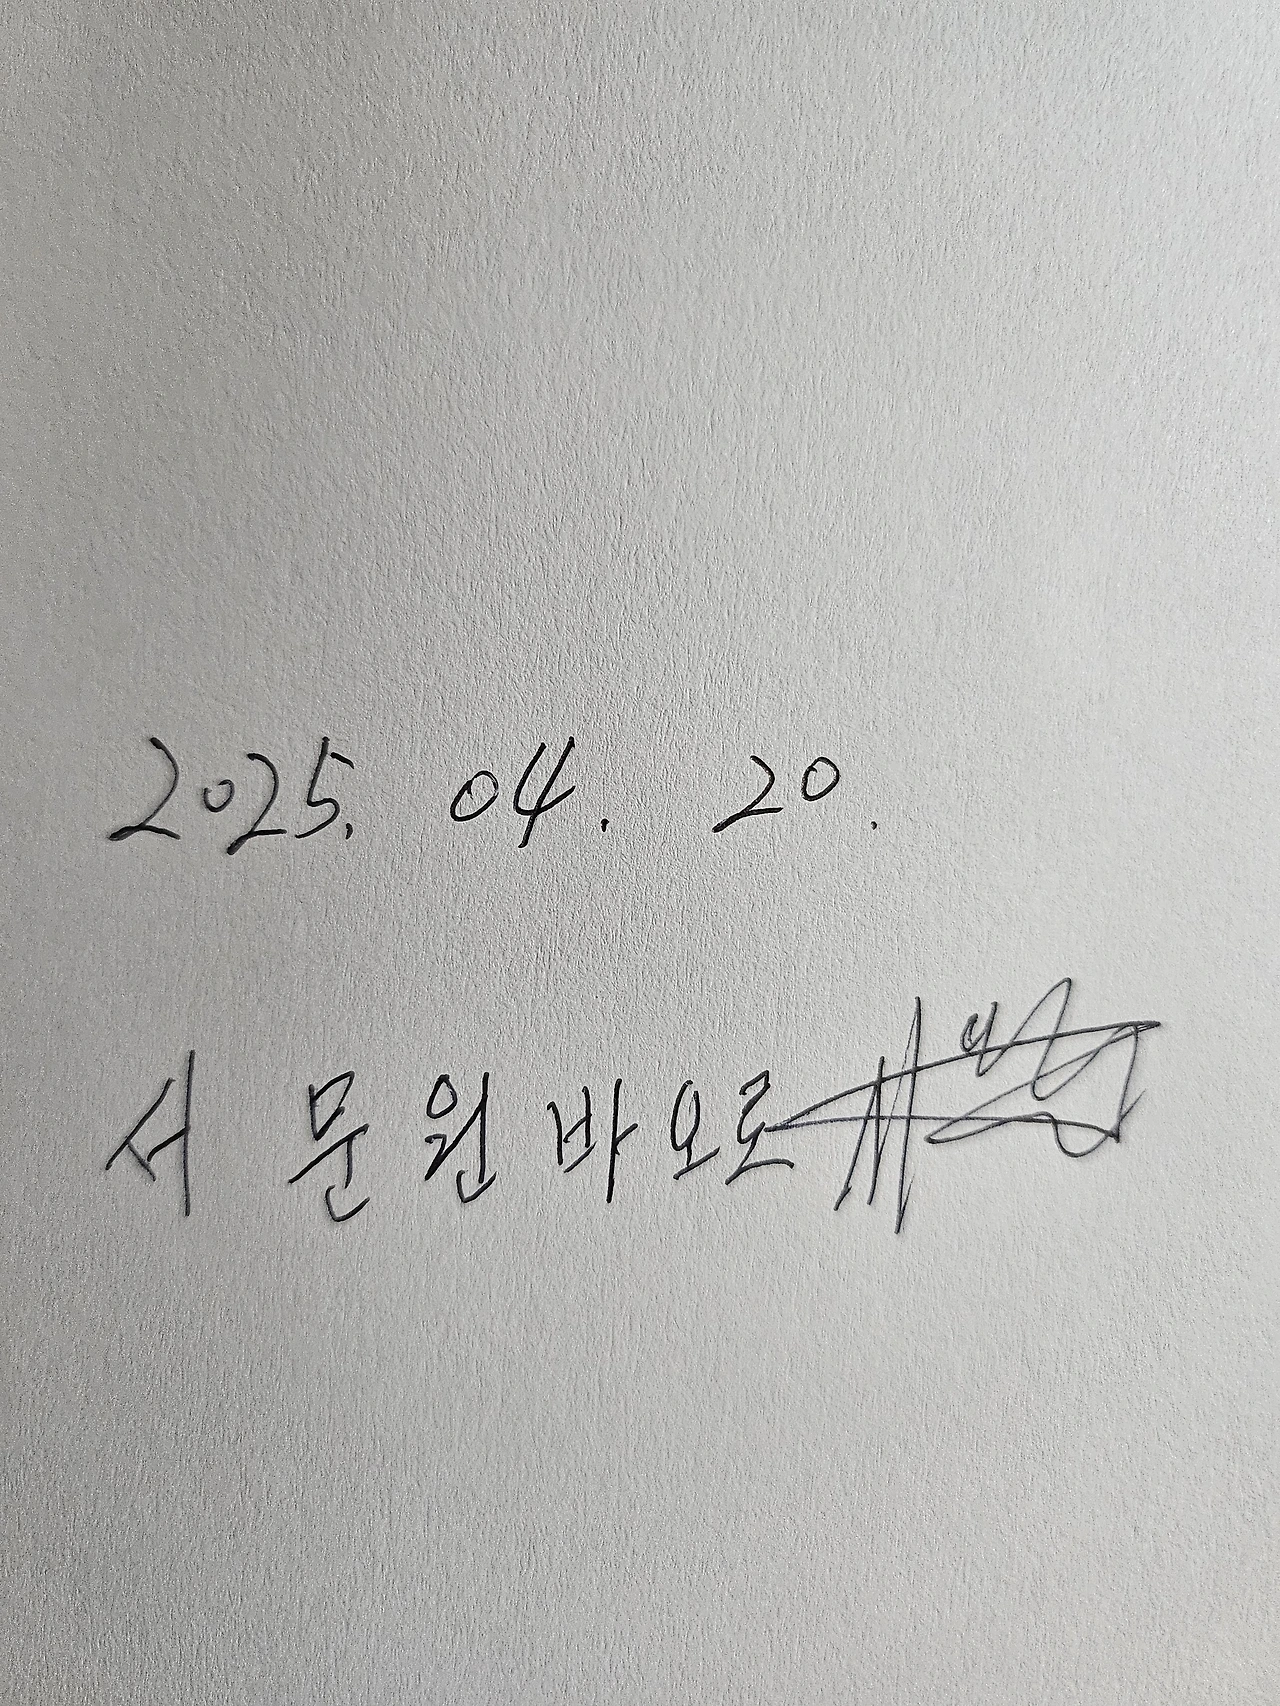 2025. 04. 20.
서 문원바오로